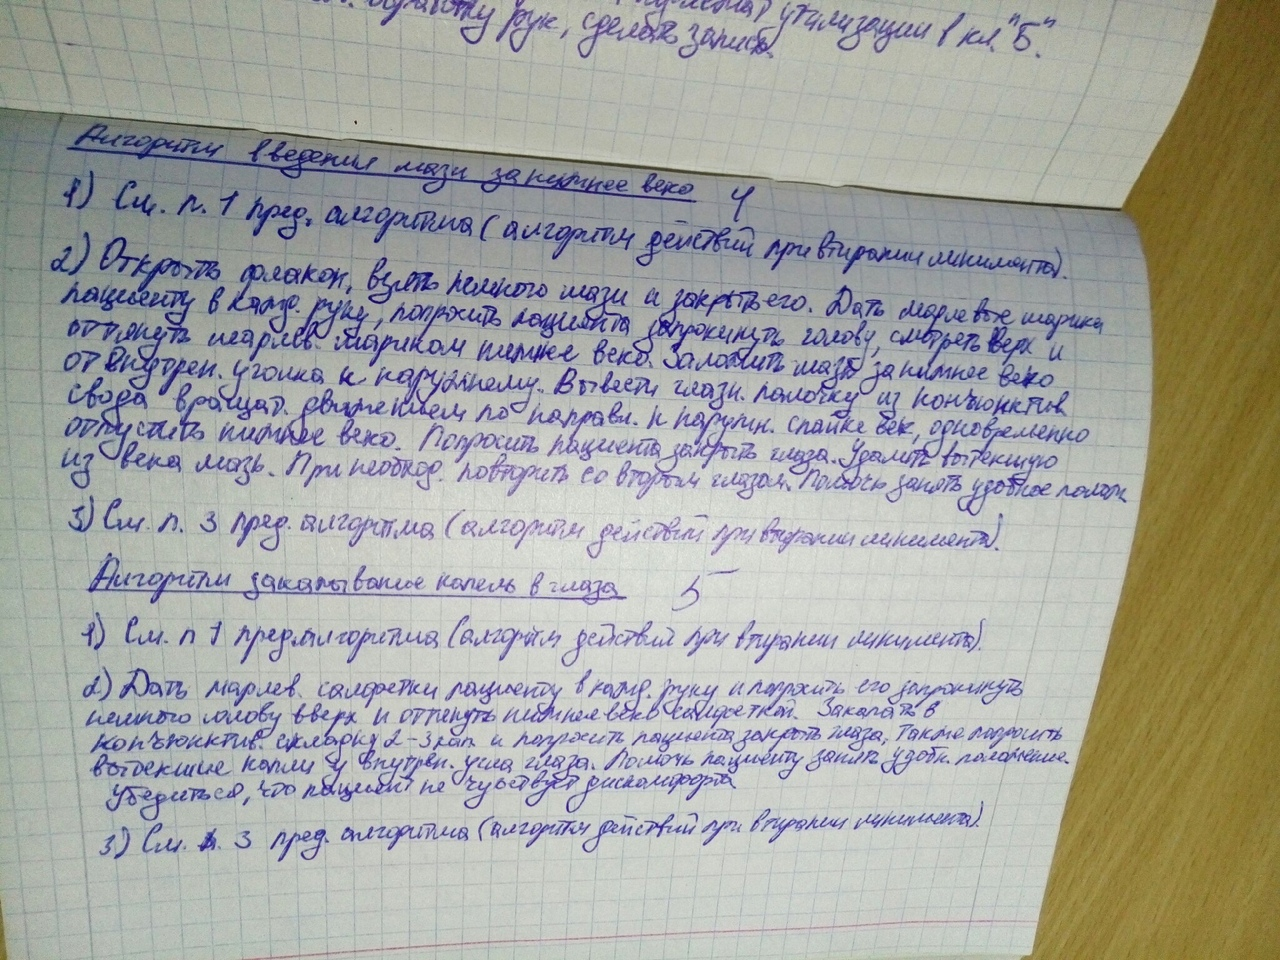 обработку рук, сделать запись. утилизации в кл. "Б".
Алгоритм введения мази за нижнее веко 4
1) См. п. 1 пред. алгоритма (алгоритм действий при втирании линимента).
2) Открыть флакон, взять немного мази и закрыть его. Дать марлевые шарики
пациенту в кажд. руку, попросить пациента запрокинуть голову, смотреть вверх и
оттянуть марлев. шариком нижнее веко. Заложить мазь за нижнее веко
от внутрен. уголка к наружному. Вывести глазн. палочку из конъюнктив.
свода вращат. движением по направл. к наружн. спайке век, одновременно
отпустить нижнее веко. Попросить пациента закрыть глаза. Удалить вытекшую
из века мазь. При необход. повторить со вторым глазом. Помочь занять удобное полож.
3) См. п. 3 пред. алгоритма (алгоритм действий при втирании линимента).
Алгоритм закапывание капель в глаза 5
1) См. п 1 пред. алгоритма (алгоритм действий при втирании линимента).
2) Дать марлев. салфетки пациенту в кажд. руку и попросить его запрокинуть
немного голову вверх и оттянуть нижнее веко салфеткой. Закапать в
конъюнктив. складку 2-3 кап. и попросить пациента закрыть глаза, также попросить
вытекшие капли у внутрен. угла глаза. Помочь пациенту занять удобн. положение.
Убедиться, что пациент не чувствует дискомфорта
3) См. п. 3 пред. алгоритма (алгоритм действий при втирании линимента).